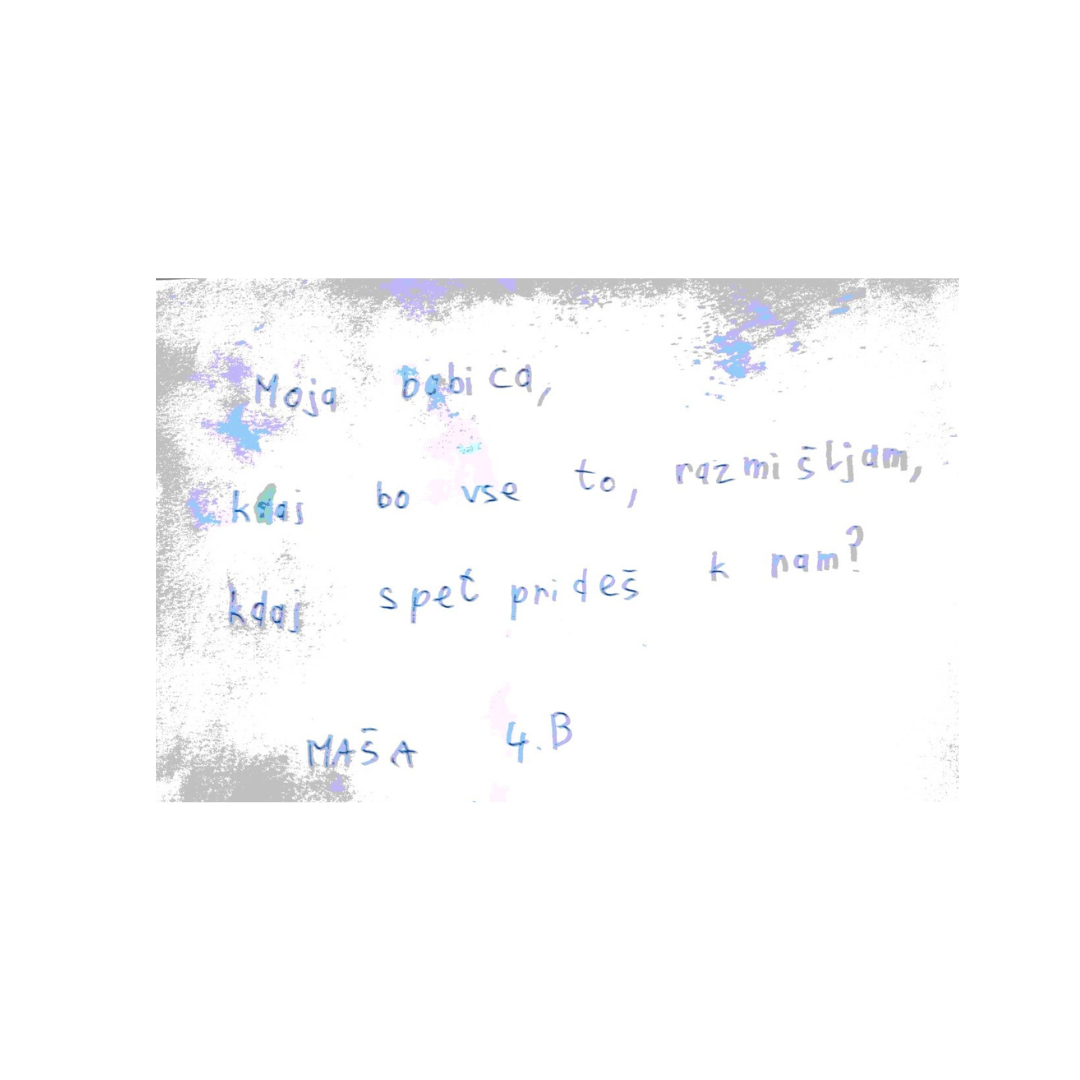 Moja babica,
kdaj bo vse to, razmišljam,
kdaj spet prideš k nam?
MAŠA 4.B